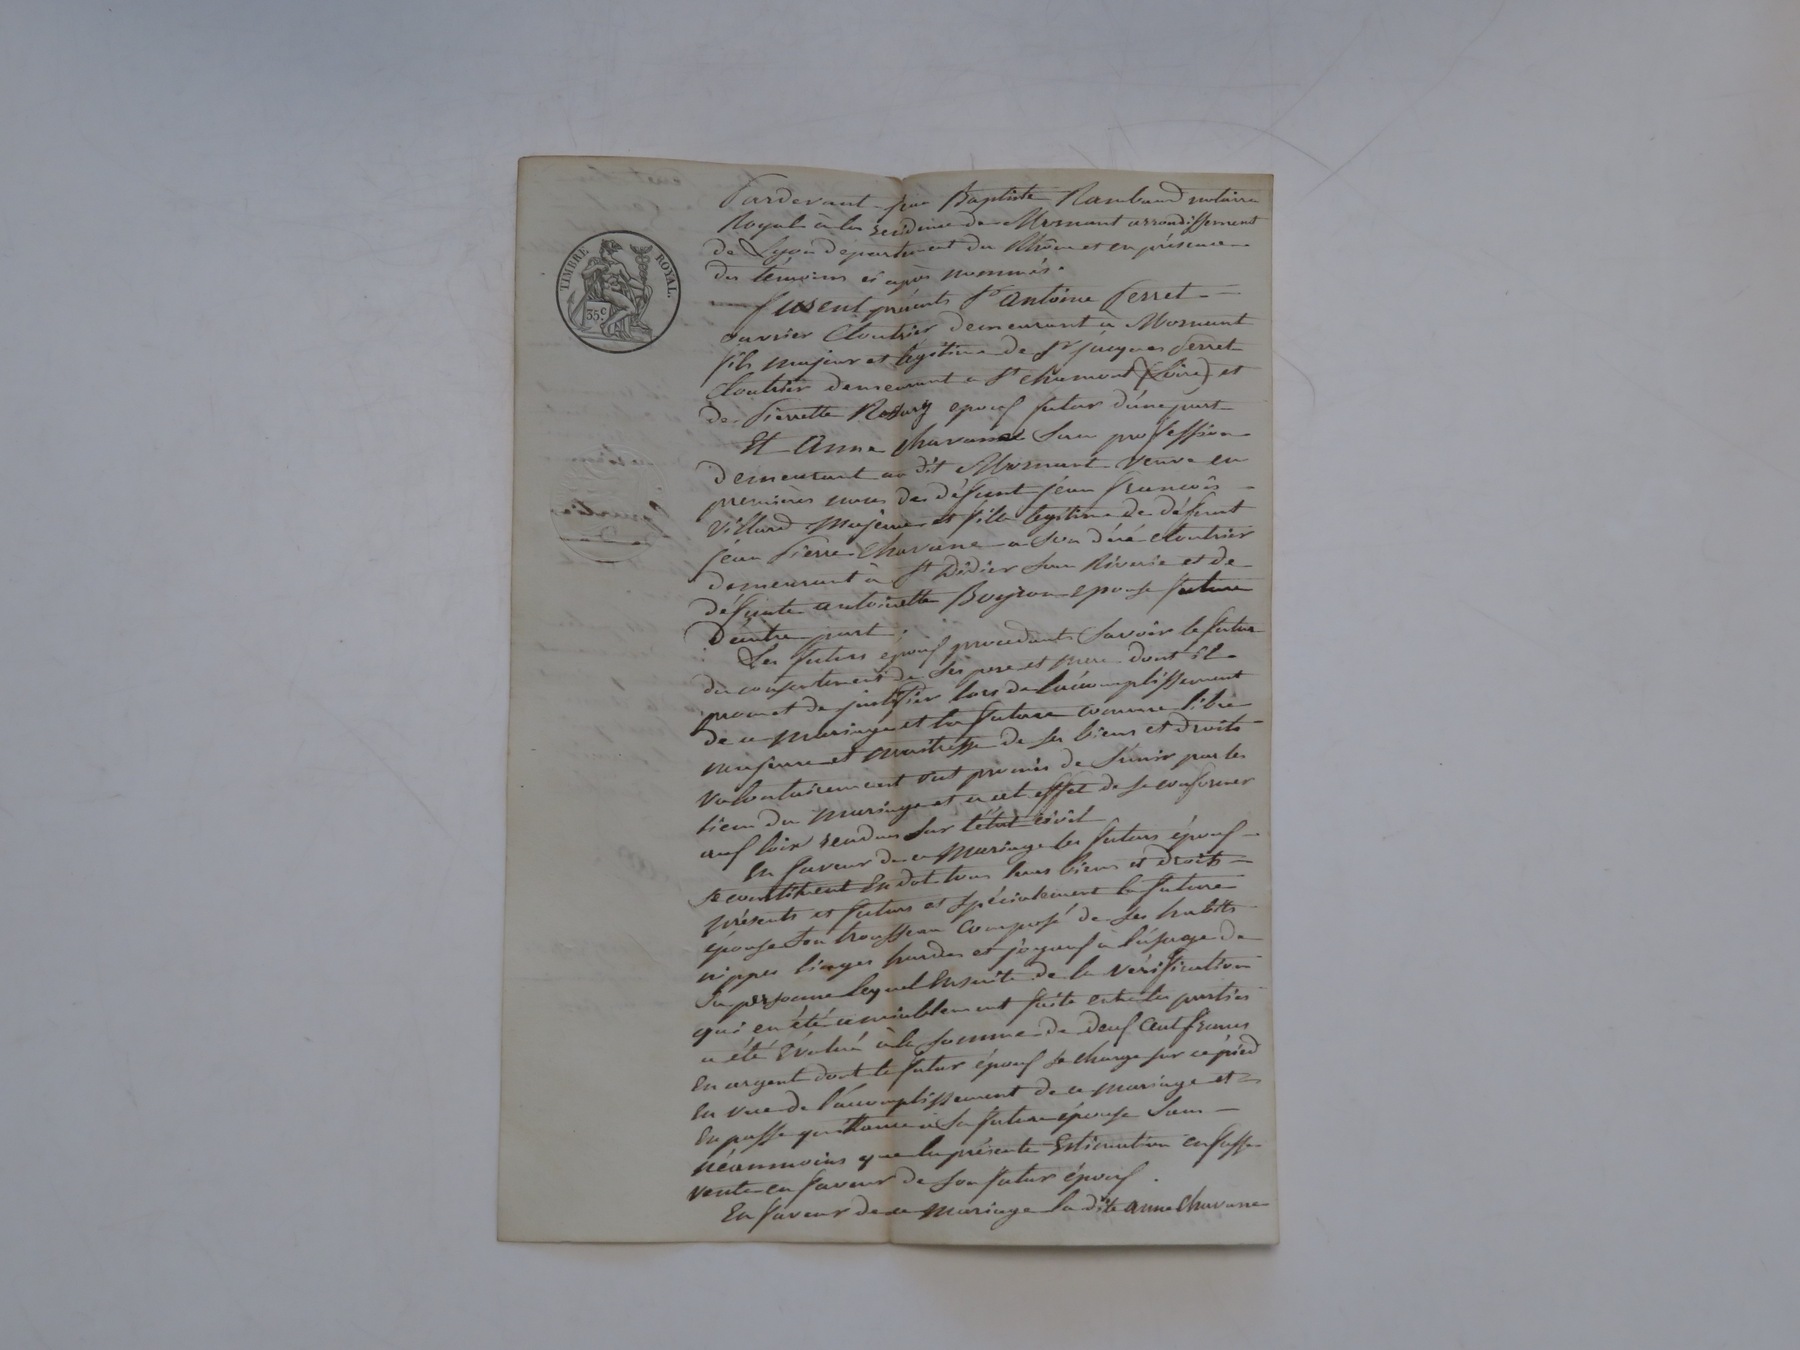 TIMBRE ROYAL.
35 c
Pardevant Jean Baptiste Rambaud notaire
Royal à la residence de Mornant arrondissement
de Lyon département du Rhône et en présence
des temoins ci après nommés.
furent présents Sr antoine Perret
ouvrier Cloutrier demeurant à Mornant
fils majeur et legitime de Sr jacques Perret
Cloutrier demeurant a St chamond (Loire) et
de Pierrette epoux futur d'une part
Et Anne Chavanne San profession
demeurant au dit Mornant veuve en
premières noces de défunt jean francois
Villard Majeure et fille legitime de défunt
jean Pierre Chavanne a son décé cloutrier
demeurant à St Didier sous Riverie et de
défunte antoinette Boyron epouse future
D'autre part ;
Les futurs époux procedants Savoir le futur
du consentement de ses pere et mere dont il
promet de justifier lors de l'acomplissement
de ce mariage et la future comme libre
majeure et maitresse de ses biens et droits
volontairement ont promis de S'unir par les
liens du mariage et a cet effet de se conformer
aux loix rendues sur l'état civil
En faveur de ce Mariage les futurs époux
se constituent En dot tous leurs biens et droits
présents et futurs et spécialement la future
épouse son trousseau Composé de ses habits
nippes linges hardes et joyaux à l'usage de
Sa personne lequel Ensuite de la vérification
qui en été amiablement faite entre les parties
a été Evalué à la somme de deux Cent francs
En argent dont le futur époux se charge sur ce pied
En vue de l'acomplissement de ce mariage et
En passe quittance à Sa future épouse Sans
néanmoins que la présente Estimation en fasse
vente en faveur de Son futur époux.
En faveur de ce Mariage la dite anne Chavanne